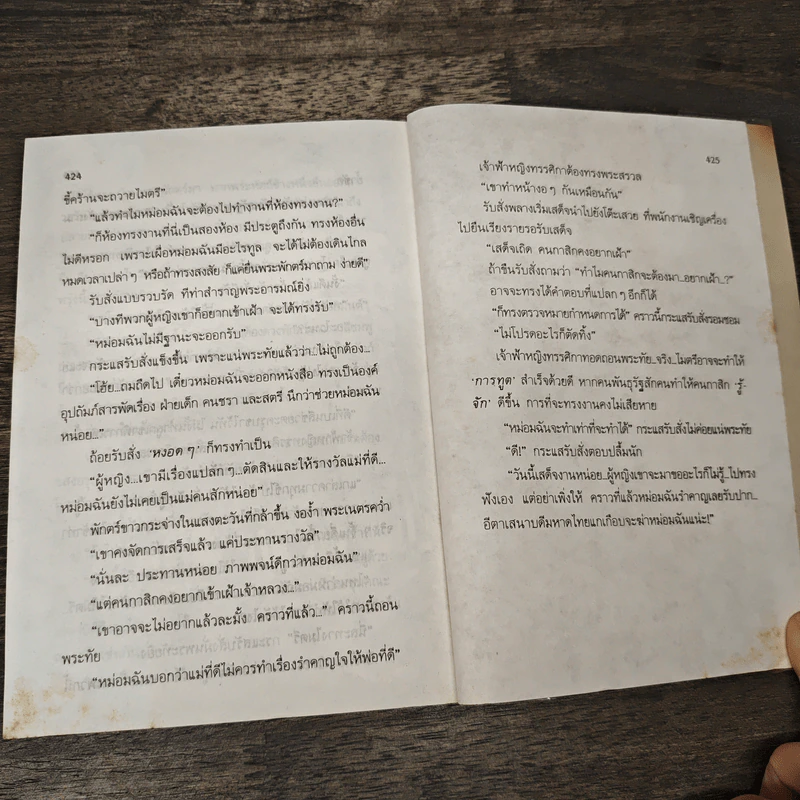 424
ขี้คร้านจะถวายไมตรี”
“แล้วทำไมหม่อมฉันจะต้องไปทำงานที่ห้องทรงงาน?”
“ก็ห้องทรงงานที่นี่เป็นสองห้อง มีประตูถึงกัน ทรงห้องอื่น
ไม่ดีหรอก เพราะเผื่อหม่อมฉันมีอะไรทูล จะได้ไม่ต้องเดินไกล
หมดเวลาเปล่าๆ หรือถ้าทรงสงสัย ก็แค่ยื่นพระพักตร์มาถาม ง่ายดี”
รับสั่งแบบรวบรัด ทีท่าสำราญพระอารมณ์ยิ่ง
“บางทีพวกผู้หญิงเขาก็อยากเข้าเฝ้า จะได้ทรงรับ”
“หม่อมฉันไม่มีฐานะจะออกรับ”
กระแสรับสั่งแข็งขึ้น เพราะแน่พระทัยแล้วว่า...ไม่ถูกต้อง...
“โฮ้ย...ถมถืดไป เดี๋ยวหม่อมฉันจะออกหนังสือ ทรงเป็นองค์
อุปถัมภ์สารพัดเรื่อง ฝ่ายเด็ก คนชรา และสตรี นึกว่าช่วยหม่อมฉัน
หน่อย...”
ถ้อยรับสั่ง ‘หงอดๆ’ ก็ทรงทำเป็น
“ผู้หญิง...เขามีเรื่องแปลกๆ...ตัดสินและให้รางวัลแม่ที่ดี...
หม่อมฉันยังไม่เคยเป็นแม่คนสักหน่อย”
พักตร์ขาวกระจ่างในแสงตะวันที่กล้าขึ้น ง่องง้ำ พระเนตรคว่ำ
“เขาคงจัดการเสร็จแล้ว แค่ประทานรางวัล”
“นั่นละ ประทานหน่อย ภาพพจน์ดีกว่าหม่อมฉัน”
“แต่คนกาสิกคงอยากเข้าเฝ้าเจ้าหลวง...”
“เขาอาจจะไม่อยากแล้วละมั้ง คราวที่แล้ว...” คราวนี้ถอน
พระทัย
“หม่อมฉันบอกว่าแม่ที่ดีไม่ควรทำเรื่องรำคาญใจให้พ่อที่ดี”
425
เจ้าฟ้าหญิงทรรศิกาต้องทรงพระสรวล
“เขาทำหน้างอๆ กันเหมือนกัน”
รับสั่งพลางเริ่มเสด็จนำไปยังโต๊ะเสวย ที่พนักงานเชิญเครื่อง
ไปยืนเรียงรายรอรับเสด็จ
“เสด็จเถิด คนกาสิกคงอยากเฝ้า”
ถ้าขืนรับสั่งถามว่า “ทำไมคนกาสิกจะต้องมา...อยากเฝ้า...?”
อาจจะทรงได้คำตอบที่แปลกๆ อีกก็ได้
“ก็ทรงตรวจหมายกำหนดการได้” คราวนี้กระแสรับสั่งรอมชอม
“ไม่โปรดอะไรก็ตัดทิ้ง”
เจ้าฟ้าหญิงทรรศิกาทอดถอนพระทัย...จริง...ไมตรีอาจจะทำให้
‘การทูต’ สำเร็จด้วยดี หากคนพันธุรัฐสักคนทำให้คนกาสิก ‘รู้-
จัก’ ดีขึ้น การที่จะทรงงานคงไม่เสียหาย
“หม่อมฉันจะทำเท่าที่จะทำได้” กระแสรับสั่งไม่ค่อยแน่พระทัย
“ดี!” กระแสรับสั่งตอบปลื้มนัก
“วันนี้เสด็จงานหน่อย...ผู้หญิงเขาจะมาขออะไรก็ไม่รู้...ไปทรง
ฟังเอง แต่อย่าเพิ่งให้ คราวที่แล้วหม่อมฉันรำคาญเลยรับปาก...
อีตาเสนาบดีมหาดไทยแกเกือบจะฆ่าหม่อมฉันแน่ะ!”